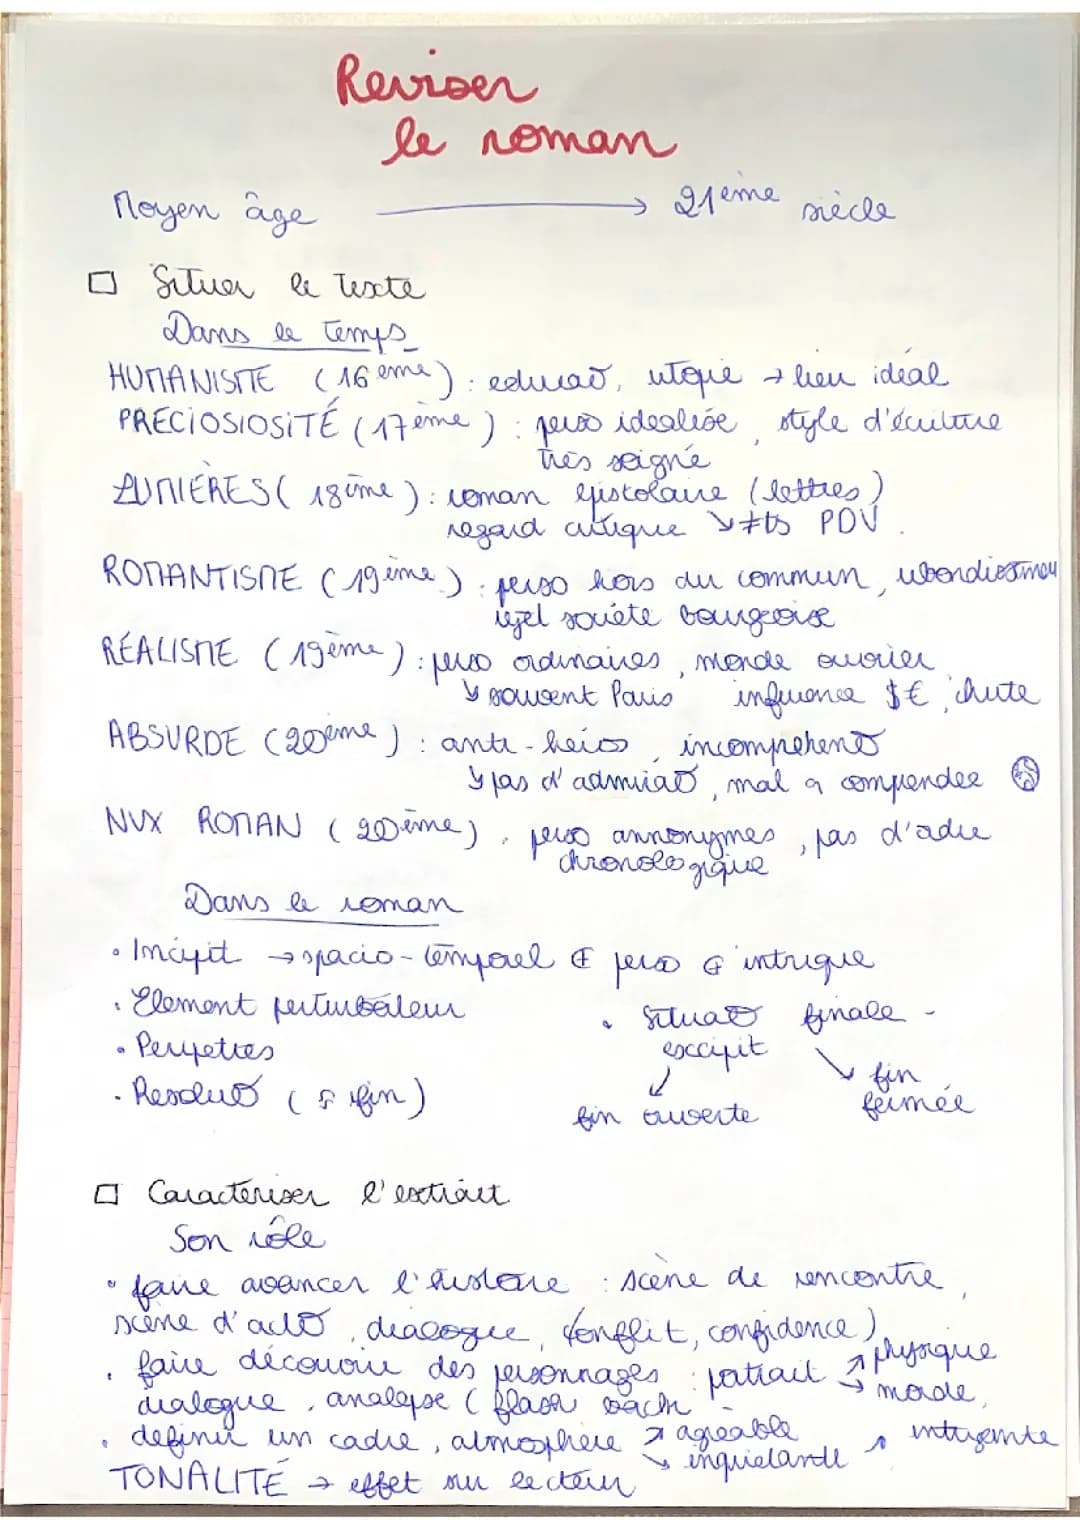 Reviser
le roman
Moyen âge → 21ème siècle
□ Situer le texte
Dans le temps
HUMANISME (16ème) : educaᵒ, utopie → lieu idéal
PRECIOSIOSITÉ (17ème) : perso idealisé, style d'écriture
très soigné
LUMIÈRES (18ème) : roman epistolaire (lettres)
regard critique ↘ ≠ts PDV.
ROMANTISME (19ème) : perso hors du commun,
rejet societe bourgeoise
RÉALISME (19ème) : perso ordinaires, monde ouvrier
↘ souvent Paris influence $€, chute
ABSURDE (20ème) : anti-heros, incomprehensᵒ
↘ pas d'admiraᵒ, mal a comprendre
NVX ROMAN (20ème), perso annonymes, pas d'adre
chronologique
Dans le roman
• Incipit → spacio-temporel + perso + intrigue
• Element perturbateur
• Situaᵒ finale -
• Peripeties
excipit
• Resoluᵒ (fin)
↙ ↘
fin ouverte fin fermée
□ Caractériser l'extrait
Son rôle
• faire avancer l'histoire : scène de rencontre,
scène d'actᵒ, dialogue, conflit, confidence)
• faire découvrir des personnages : portrait ↗ physique → morale,
dialogue, analepse (flash back
• definir un cadre, atmosphère ↗ agreable ↘ inquietante ↗ intrigante
TONALITÉ → effet sur lecteur